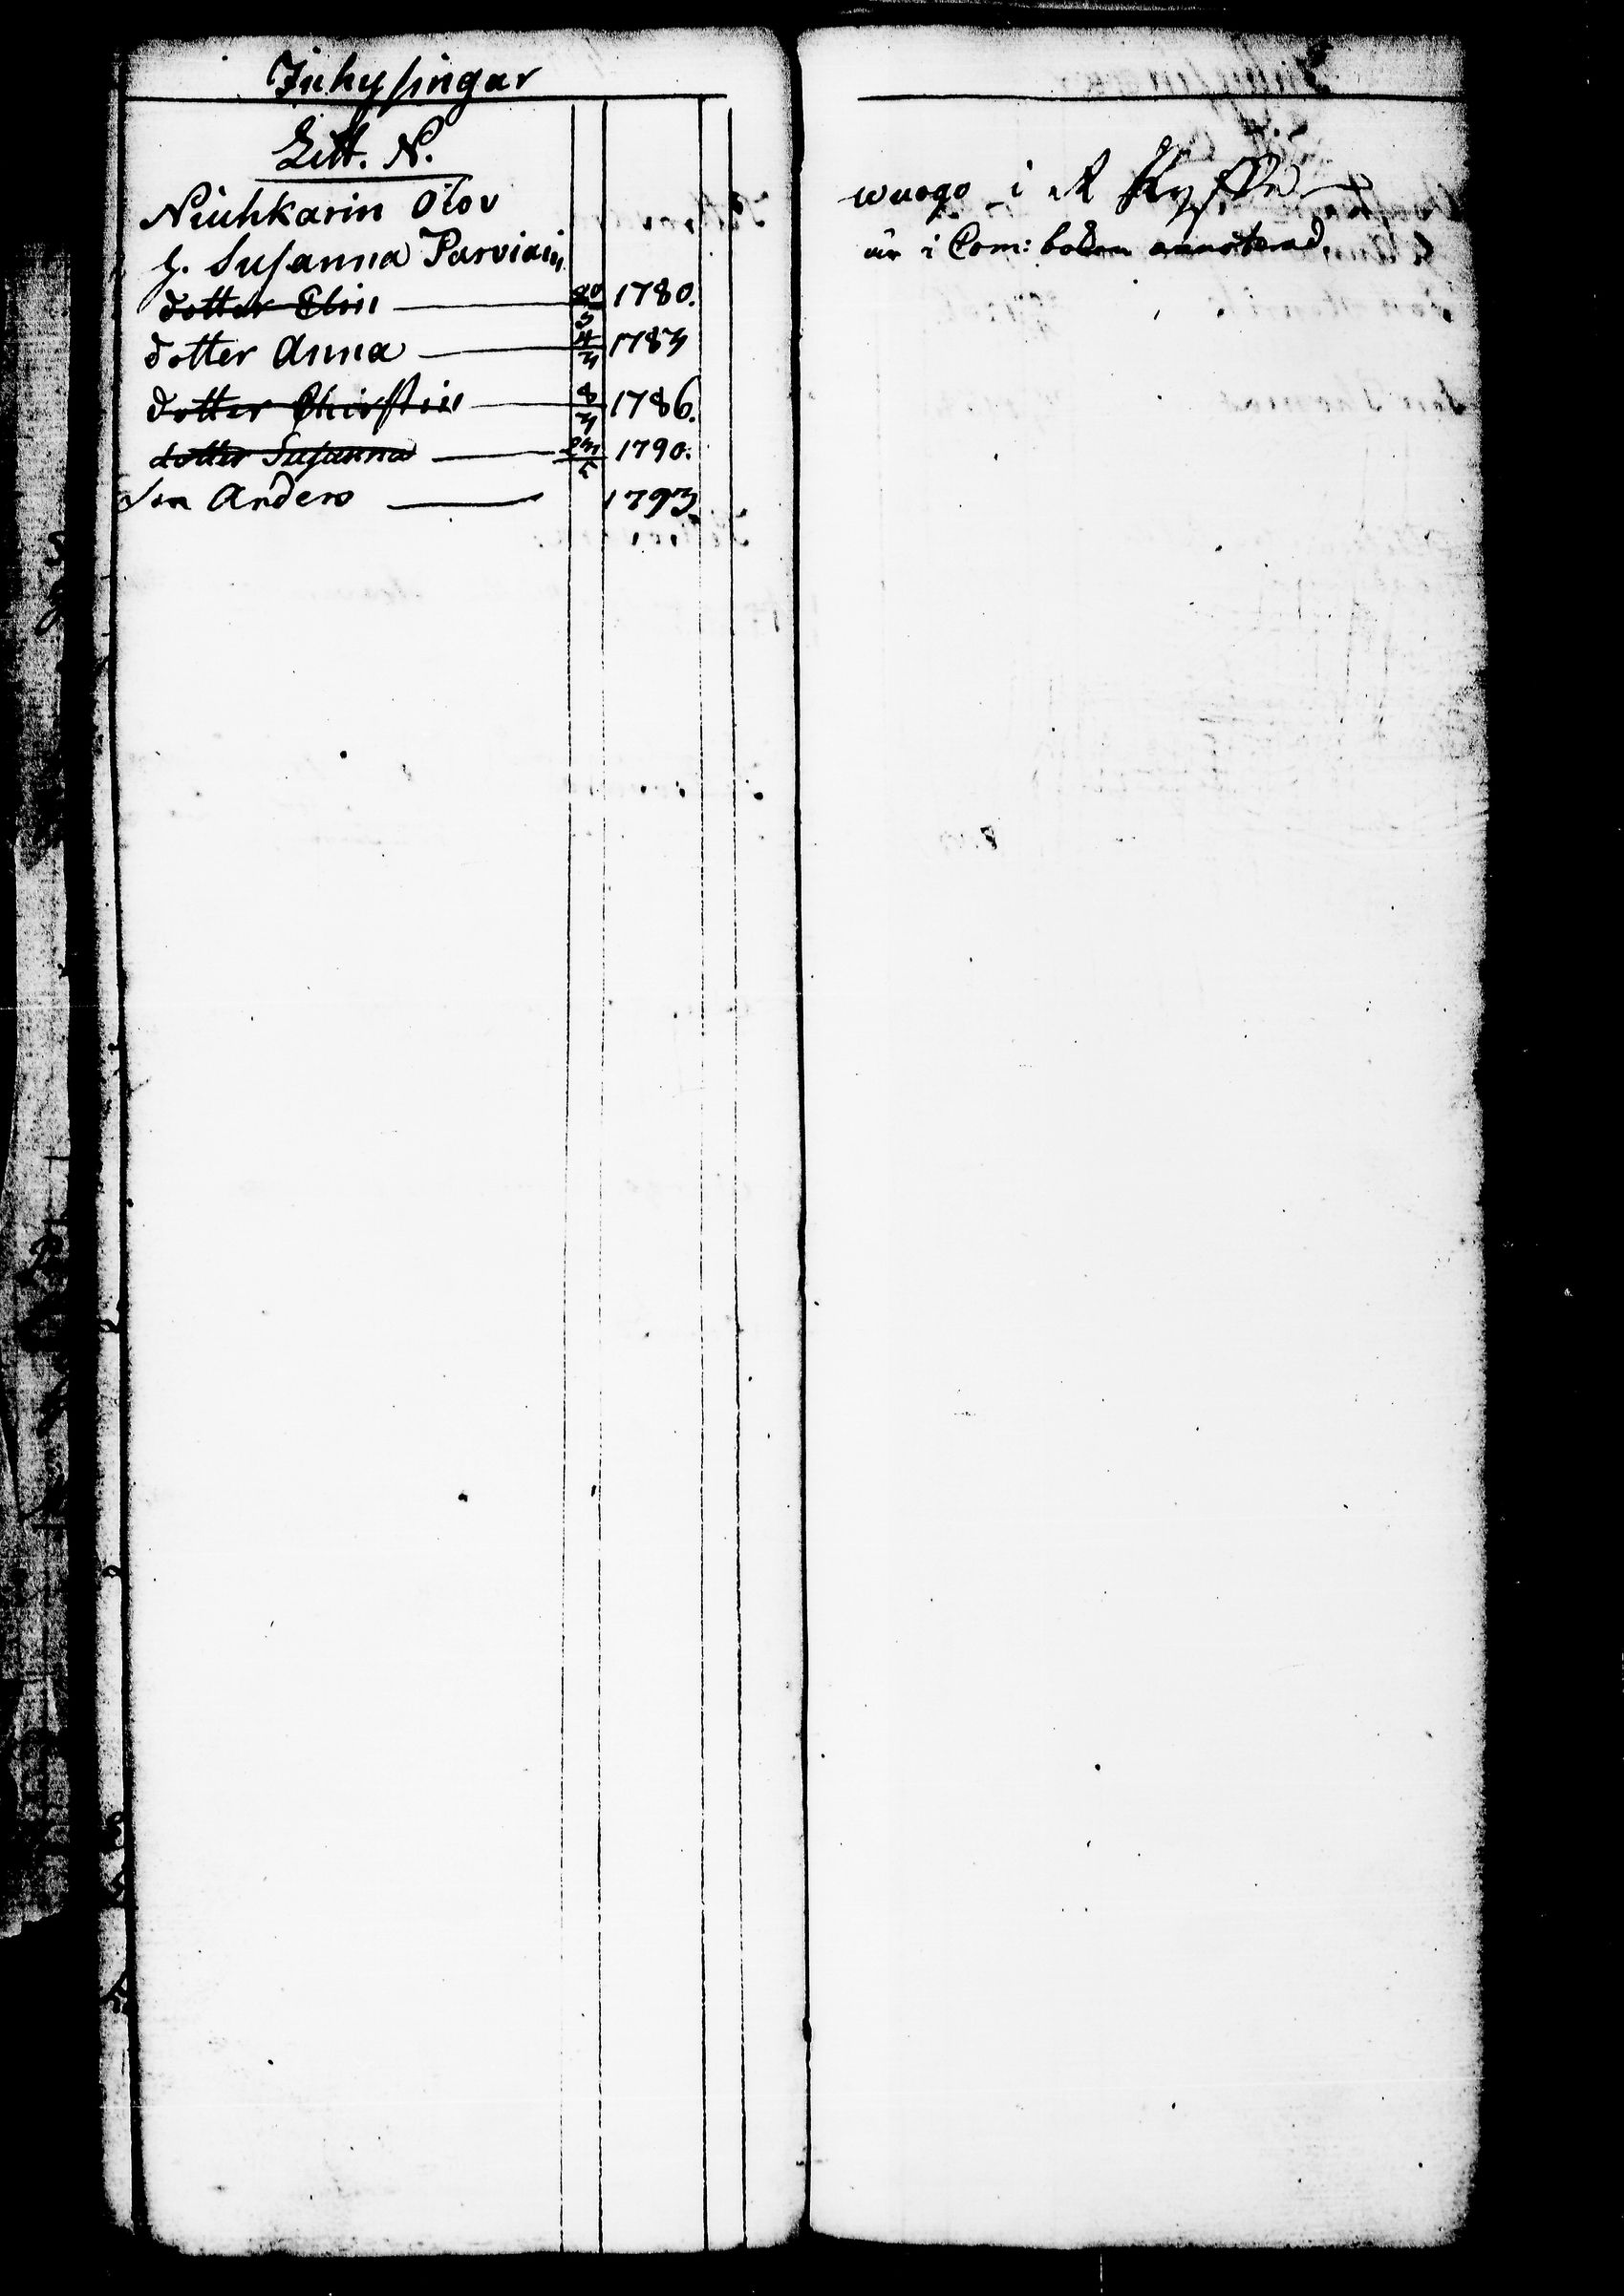 Inhysingar
Litt. N.
Niuhkarin Olov
h. Susanna Parviain
dotter Elin 1780.
dotter Anna 1783
dotter Christin 8/3 1786.
dotter Susanna 1790.
Son Anders 1793
i
är i Com: boken annoterad.